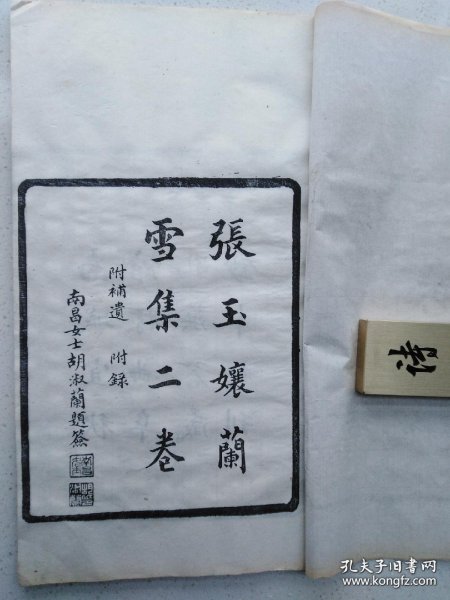 張玉孃蘭
雪集二卷
附補遺 附錄
南昌女士胡淑蘭題簽
孔夫子旧书网
www.kongfz.com